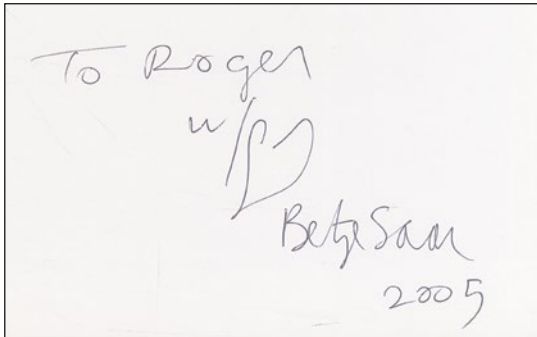 To Roger
w/
Betye Saar
2005